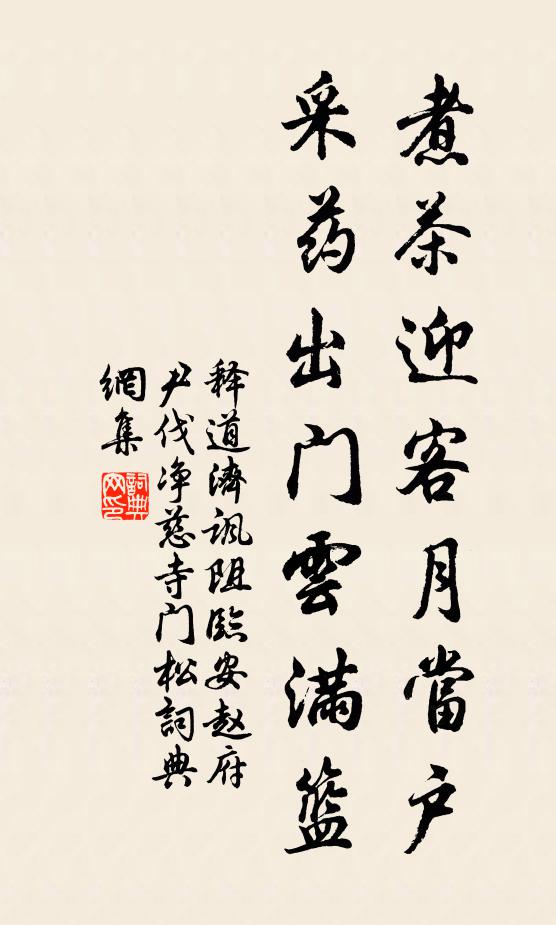 煮茶迎客月當户
采药出门雲满籃
释道濟諷阻臨安赵府
尹伐净慈寺门松詞典
網集
詞典
网印